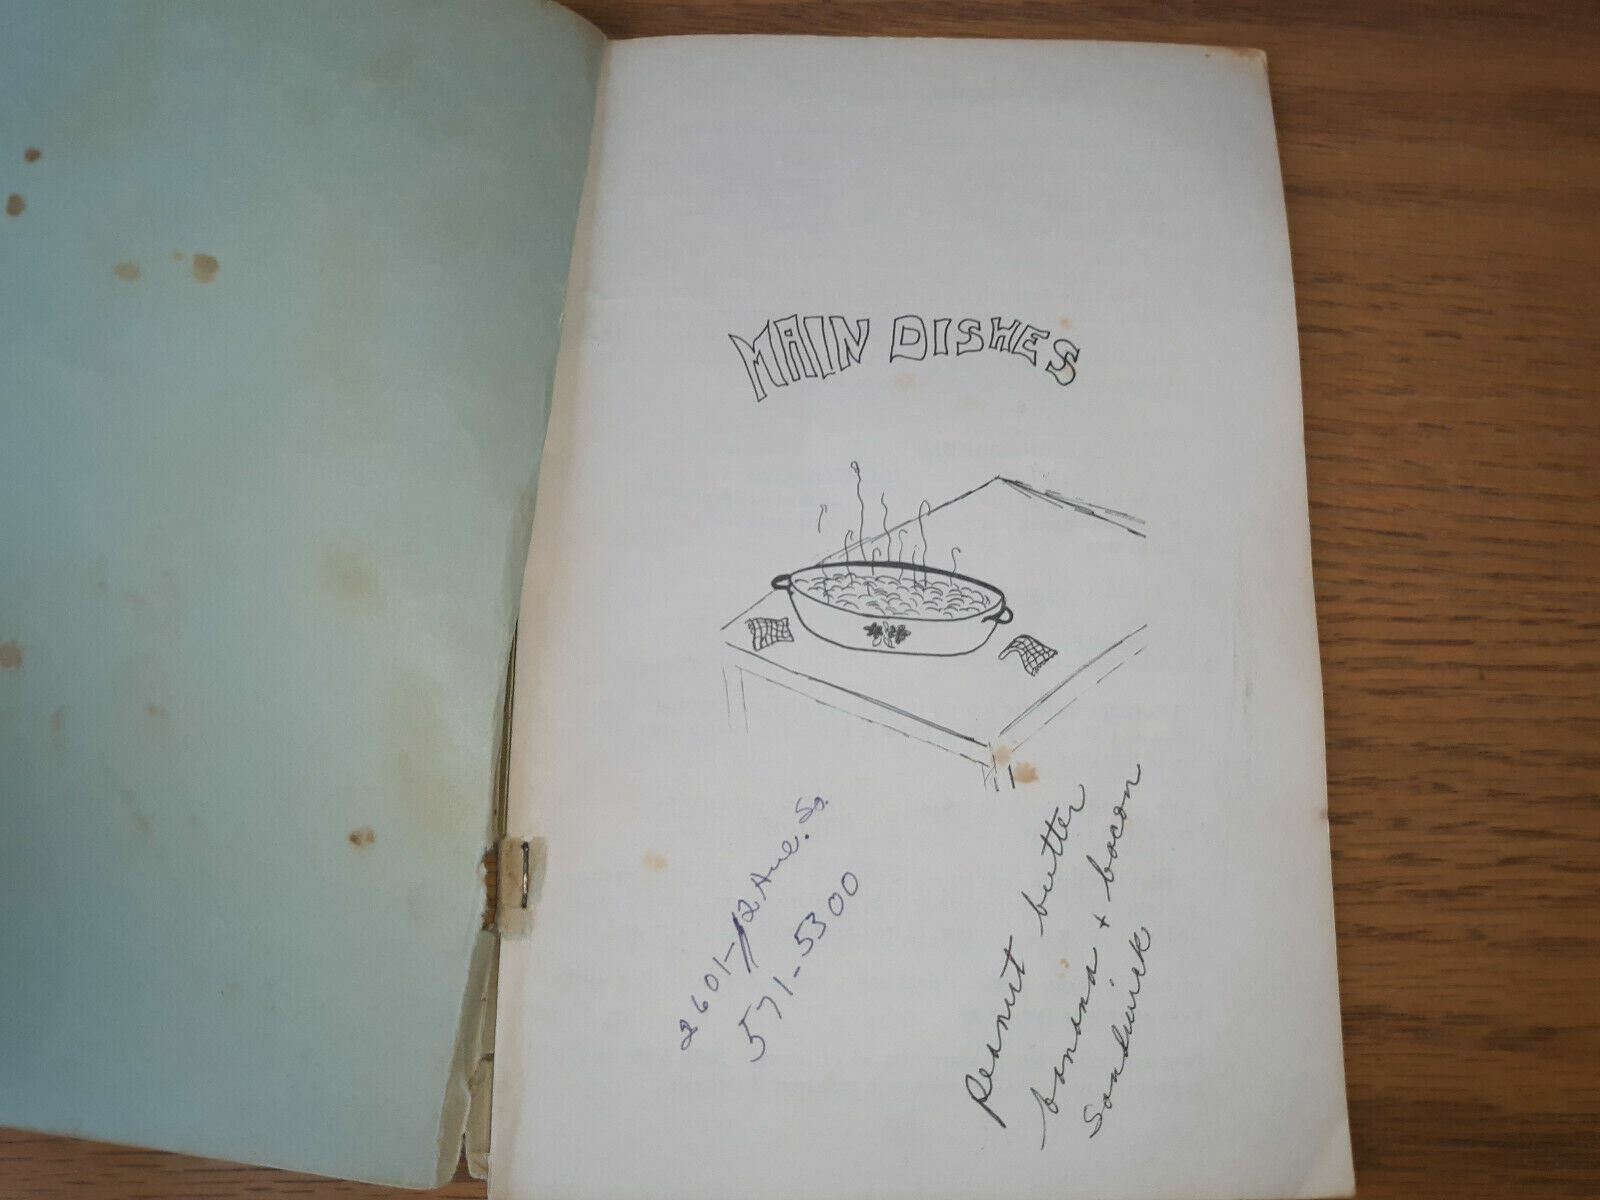 MAIN DISHES
2601-12 Ave. So.
571-5300
Peanut butter
banana + bacon
Sandwich